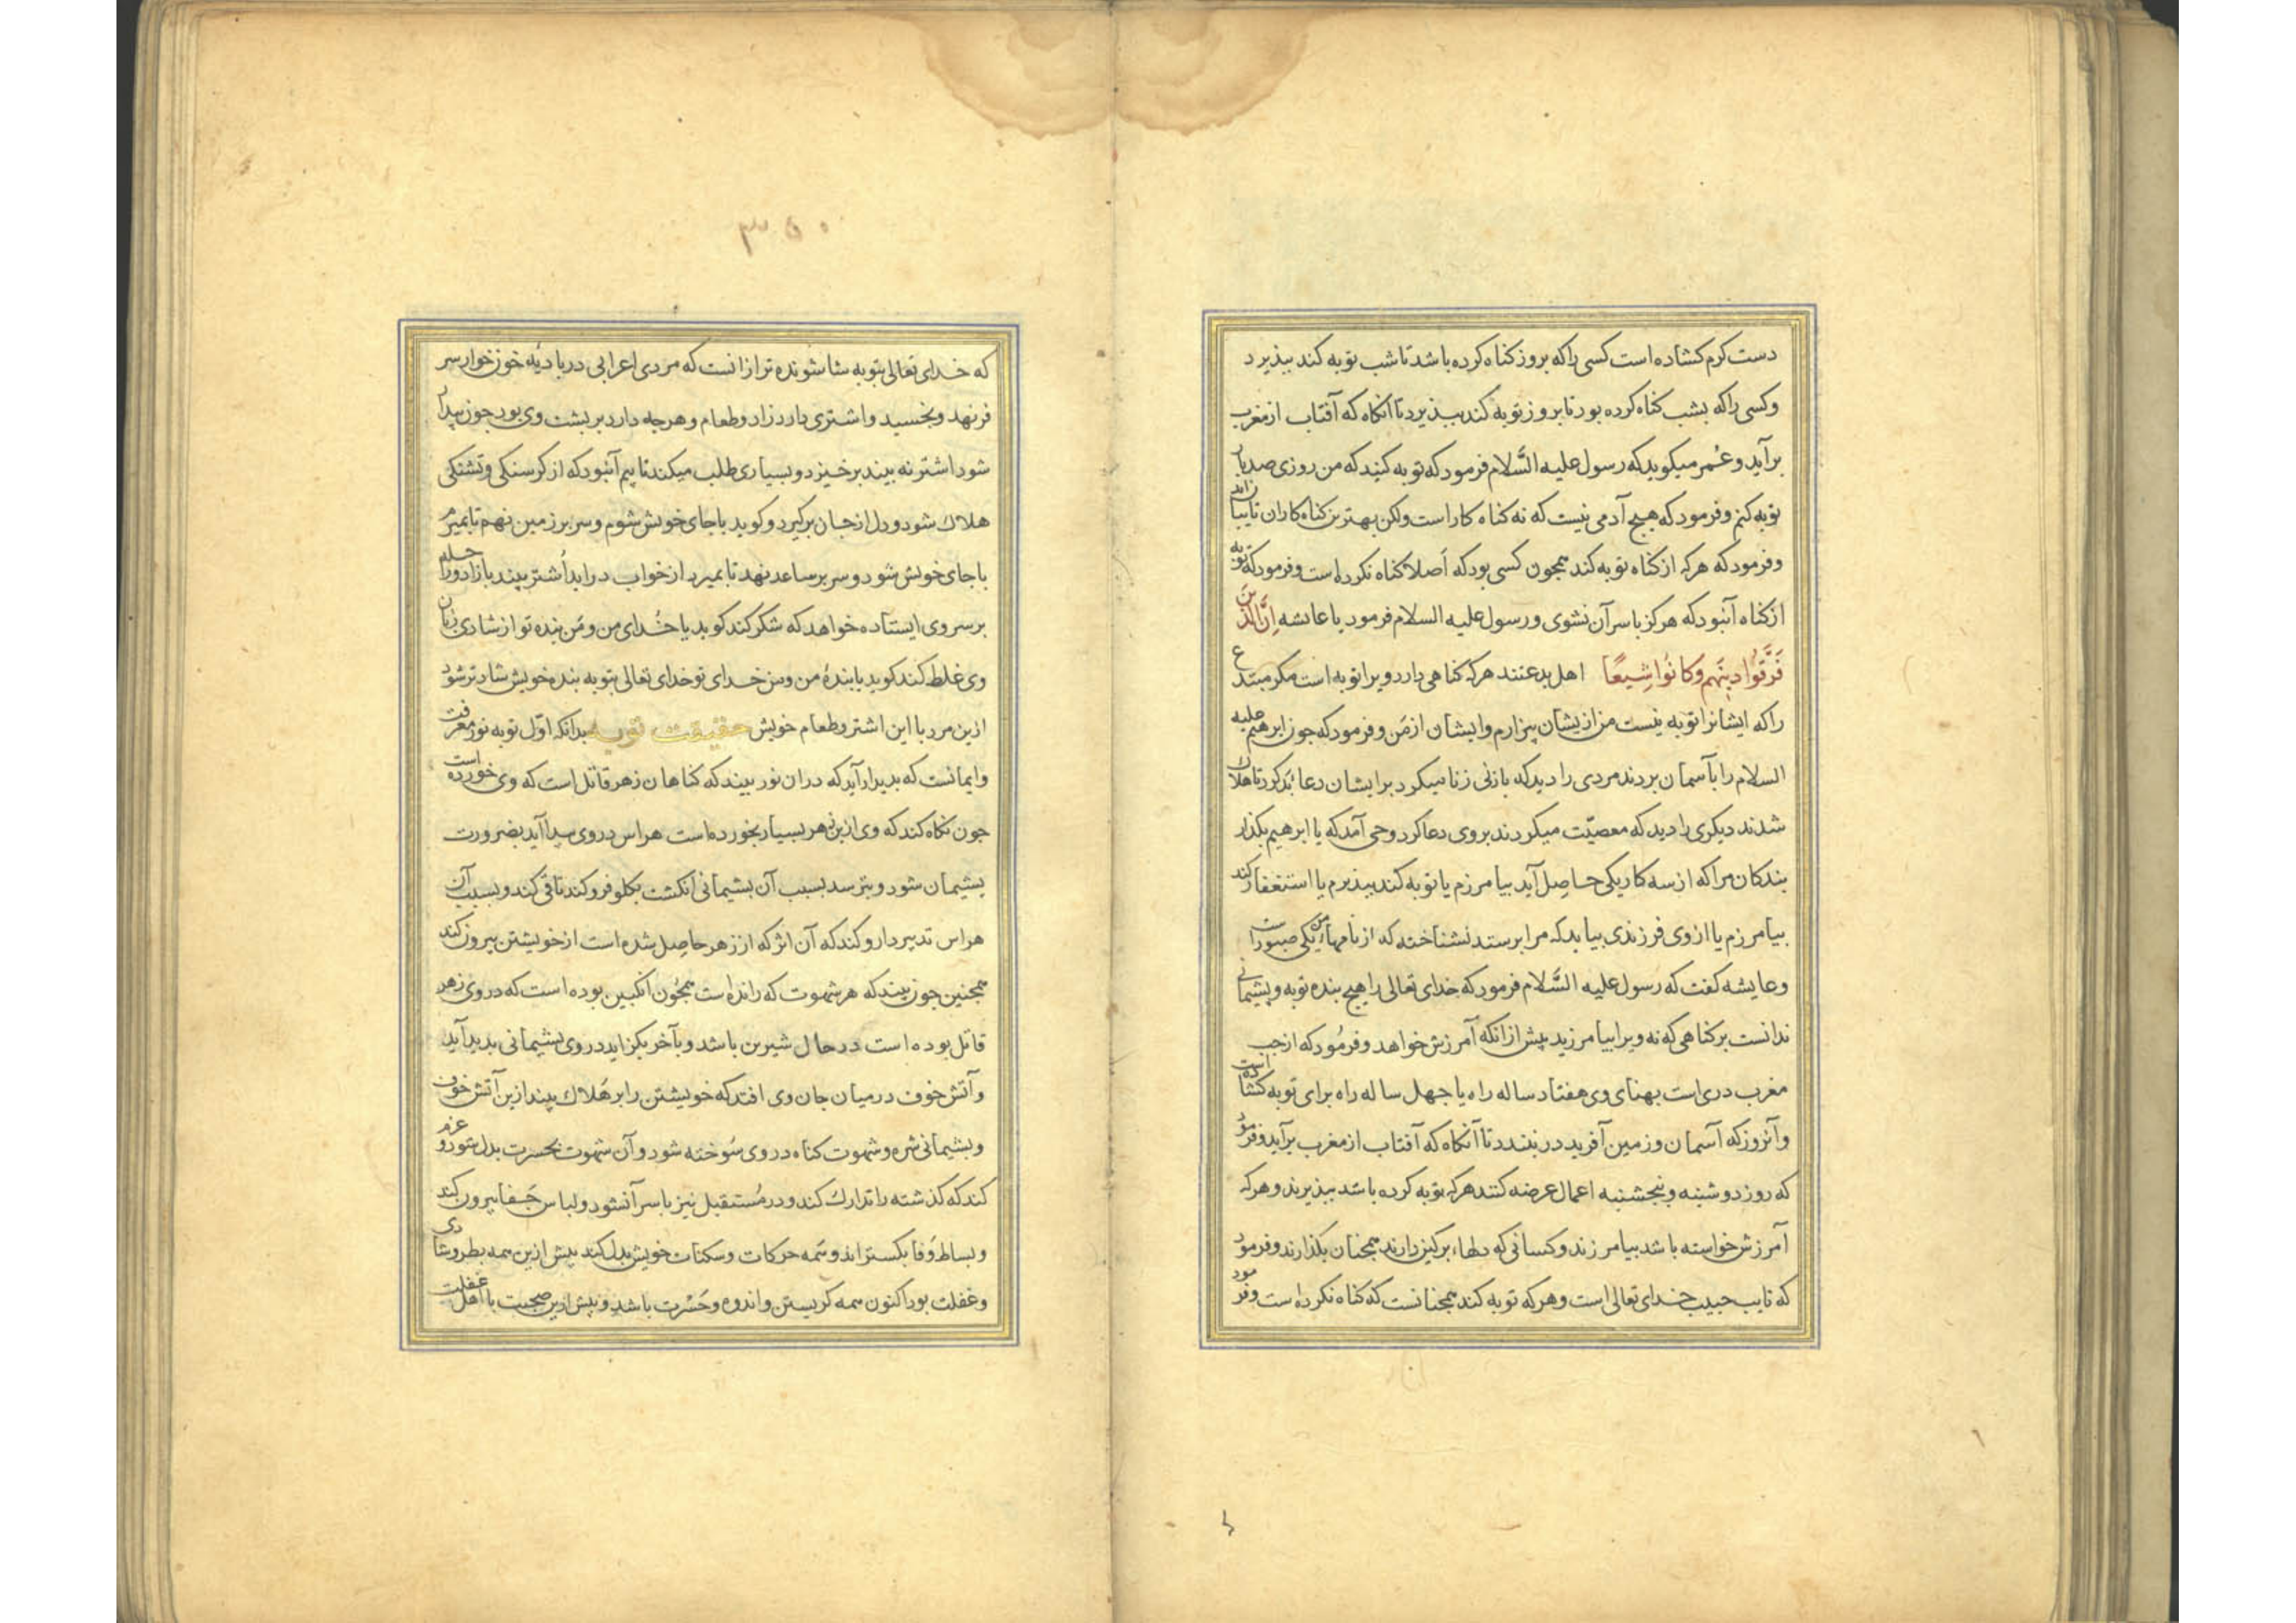 دست کرم کشاده است کسی را که بروز کناه کرده باشد تا شب توبه کند ببذیرد
و کسی را که بشب کناه کرده بود تا بروز توبه کند ببذیرد تا آنکاه که آفتاب از مغرب
برآید و عُمر میکوید که رسول علیه السَّلام فرمود که توبه کنید که من روزی صد بار
توبه کنم و فرمود که هیچ آدمی نیست که نه کناه کار است ولکن بهترین کناه کاران تایبانند
و فرمود که هرکه از کناه توبه کند همجون کسی بود که اَصلا کناه نکرده است و فرمود که توبه
از کناه آنبود که هرکز با سر آن نشوی و رسول علیه السلام فرمود یا عایشه اِنَّ الَّذینَ
فَرَّقُوا دینَهم وَکانُوا شِیعًا اهل بدعتند هرکه کناهی دارد ویرا توبه است مکر مبتدع
را که ایشانرا توبه نیست من ازیشان بیزارم و ایشان از مَن و فرمود که جون ابرهیم علیه
السلام را بآسمان بردند مردی را دید که با زنی زنا میکرد بر ایشان دعا بَد کرد تا هلاک
شدند دیکری را دید که معصیّت میکردند بروی دعا کرد وحی آمد که یا ابرهیم بکذار
بندکان مرا که از سه کار یکی حاصِل آید بیامرزم یا توبه کند ببذیرم یا استغفار کند
بیامرزم یا از وی فرزندی بیاید که مرا برستد نشناخته که از نامهای من یکی صبور است
و عایشه کفت که رسول علیه السَّلام فرمود که خدای تعالی را هیج بنده توبه و پشیمانی
ندانست بر کناهی که نه ویرا بیامرزید پیش از انکه آمرزش خواهد و فرمُود که از جب
مغرب دری است بهنای وی هفتاد ساله راه یا جهل ساله راه برای توبه کشاده است
و آنروز که آسمان و زمین آفرید در نبندد تا آنکاه که آفتاب از مغرب برآید و فرمود
که روز دوشنبه و پنجشنبه اعمال عرضه کنند هرکه توبه کرده باشد ببذیرند و هرکه
آمرزش خواسته باشد بیامرزند و کسانی که دلهاء بر کین دارند همجنان بکذارند و فرمود
که تایب حبیب خدای تعالی است و هرکه توبه کند همجنانست که کناه نکرده است و فرمود
۳۵۰
که خدای تعالی بتوبه شاشونده تر از انست که مردی اعرابی در بادیُه خون خوار سر
فرنهد و بخسبد و اشتری دارد زاد و طعام و هرجه دارد بر بشت وی بود جون بیدار
شود اشتر نه بیند برخیزد و بسیاری طلب میکند تا بیم آنبود که از کرسنکی و تشنکی
هلاک شود و دل از جان برکیرد و کوید با جای خویش شوم و سر بر زمین نهم تا بمیرم
با جای خویش شود و سر بر ساعد نهد تا بمیرد از خواب دراید اُشتر بیند با زاد و راحله
بر سر وی ایستاده خواهد که شکر کند کوید یا خُدای من و مَن بنده تو از شادی زبان
وی غلط کند کوید یا بندهٔ من و من خدای تو خدای تعالی بتوبه بنده خویش شادتر شود
ازین مرد با این اشتر و طعام خویش حقیقت توبه بدانکه اوّل توبه نور معرفت
و ایمانست که بدیدار آید که دران نور بیند که کناهان زهر قاتل است که وی خورده است
جون نکاه کند که وی ازین زهر بسیار بخورده است هراس در وی پیدا آید بضرورت
پشیمان شود و بترسد بسبب آن پشیمانی انکشت بکلو فرو کند تا قی کند و بسبب آن
هراس تدبیر دارو کند که آن اثر که از زهر حاصِل شده است از خویشتن بیرون کند
همجنین جون بیند که هر شهوت که رانده است همجُون انکبین بوده است که در وی زهر
قاتل بوده است در حال شیرین باشد و بآخر بکزاید در وی پشیمانی بدید آید
و آتش خوف در میان جان وی افتد که خویشتن را بر هَلاک بیند ازین آتش خوف
و بشیمانی شره و شهوت کناه در وی سُوخته شود و آن شهوت بحسرت بدل شود و عزم
کند که کذشته را تدارک کند و در مُستقبل نیز با سر آنشود و لباس جَفا بیرون کند
و بساط وَفا بکستراند و همه حرکات و سکنات خویش بدل کند پیش ازین همه بطر و شادی
و غفلت بود اکنون همه کریستن و اندوه و حَسْرت باشد و پیش ازین صحبت با اهل غفلت